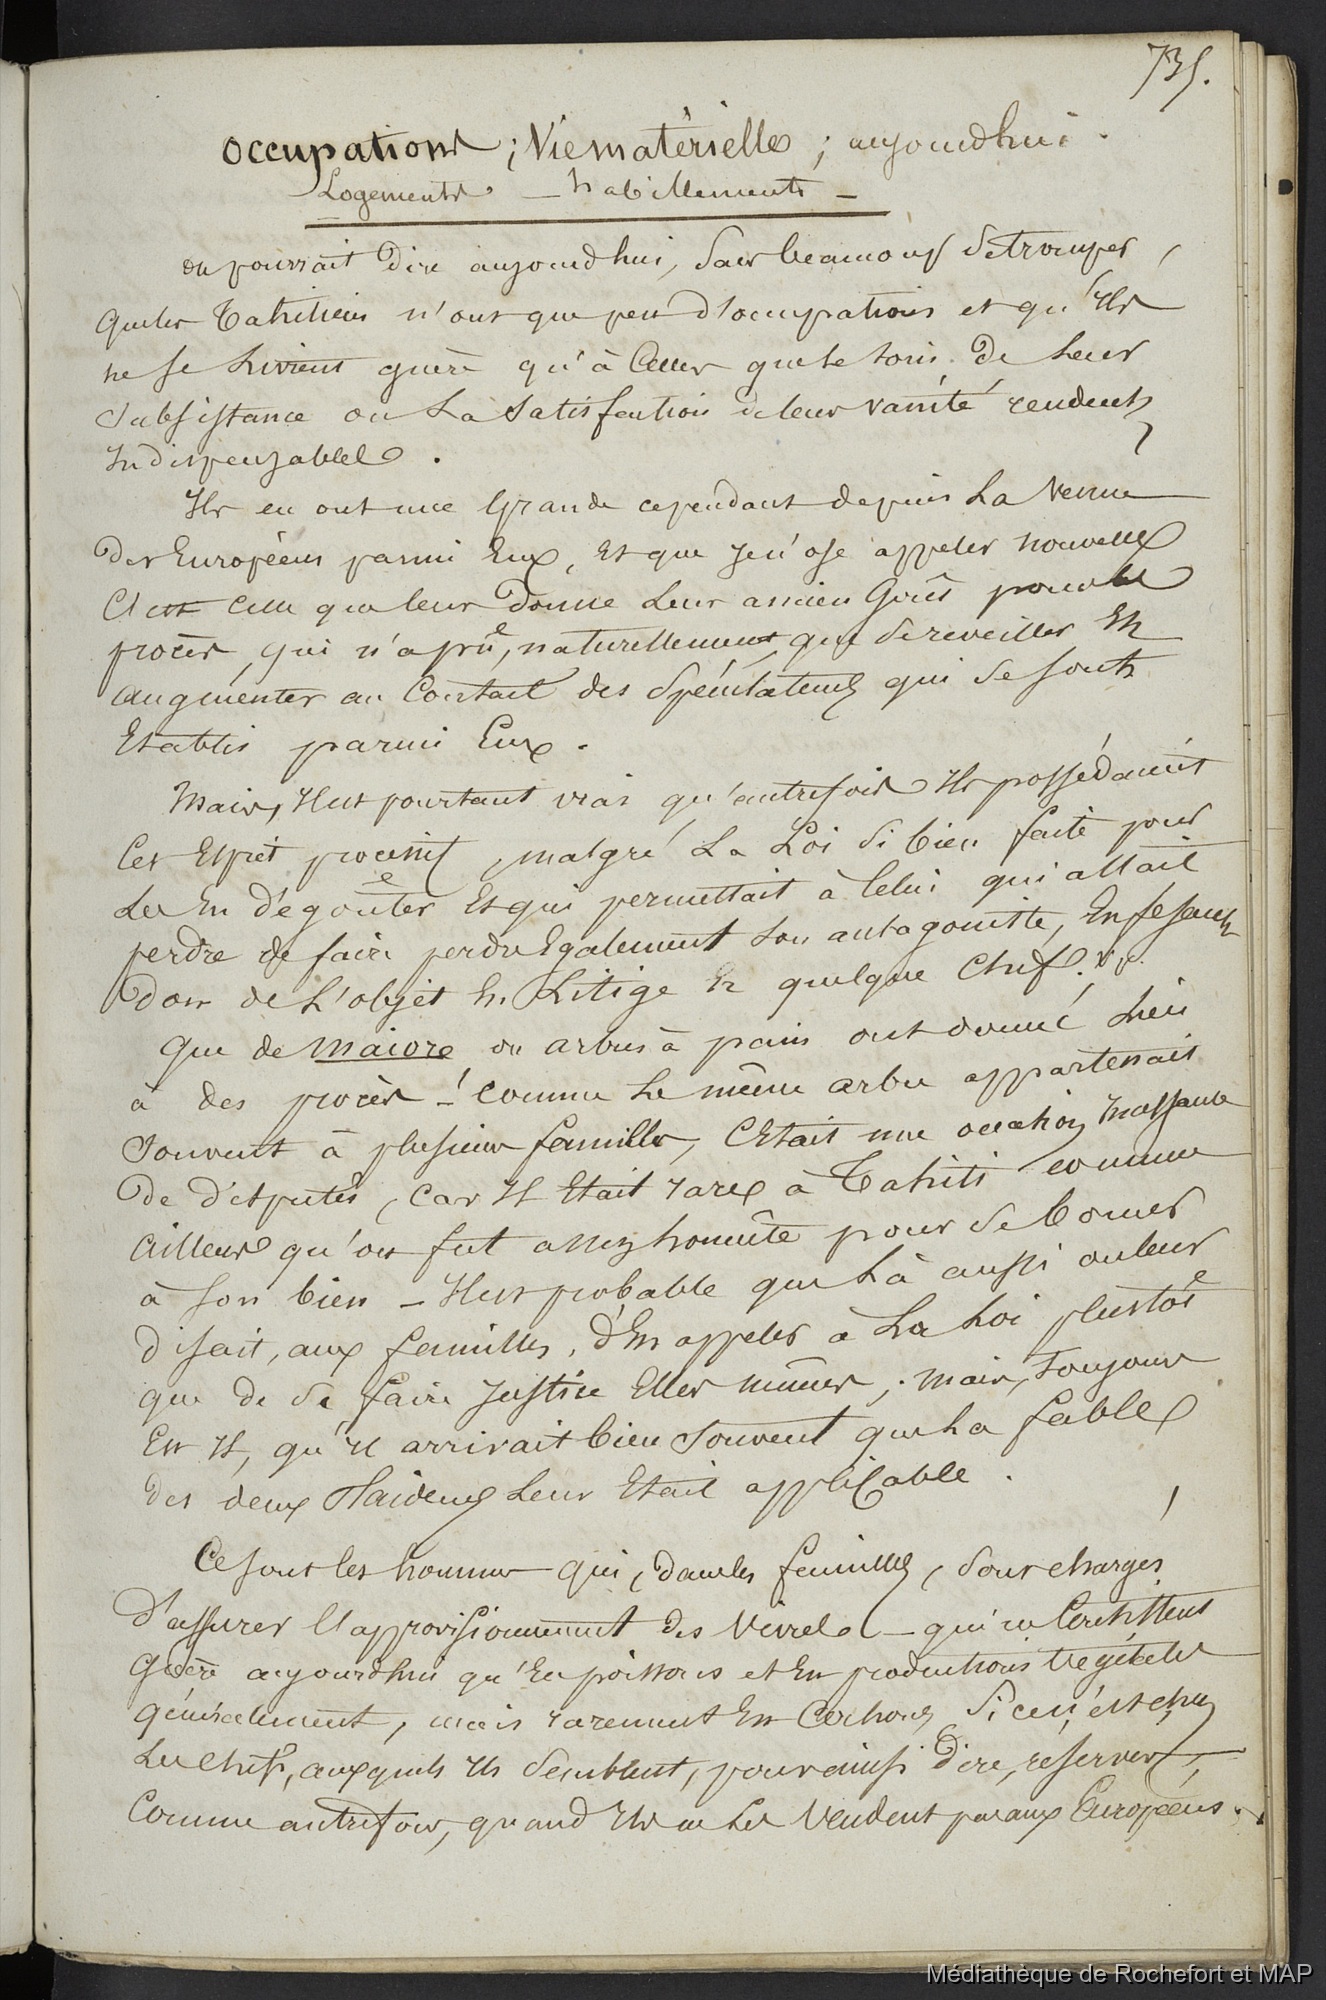 735.
Occupations ; Vie matérielle ; aujourdhui.
Logements — habillements —
on pourrait dire aujourdhui, sans beaucoup se tromper,
que les Tahitiens n'ont que peu d'occupations et qu'ils
ne se livrent guère qu'à celles que le soin de leur
subsistance ou la satisfaction de leur vanité rendent
indispensables.
Ils en ont une grande cependant depuis la venue
des Européens parmi eux, et que je n'ose appeler nouvelle
c'est celle que leur donne leur ancien goût pour les
procès, qui n'a pûe, naturellement, que se reveiller et
augmenter au contact des spéculateurs qui se sont
établis parmi eux.
Mais, il est pourtant vrai qu'autrefois ils possédaient
cet esprit processif, malgré la loi si bien faite pour
les en dégoûter et qui permettait à celui qui allait
perdre de faire perdre également son antagoniste, en fesant
don de l'objet en litige à quelque chef.
que de maiore ou arbres à pain ont donné lieu
à des procès ! — comme le même arbre appartenait
souvent à plusieurs familles, c'était une occasion incessante
de disputes, car il était rare à Tahiti comme
ailleurs qu'on fut assez honnête pour se borner
à son bien — Il est probable que là aussi on leur
disait, aux familles, d'en appeler à la loi plustôt
que de se faire justice elles mêmes ; mais, toujours
est il, qu'il arrivait bien souvent que la fable
des deux Plaideurs leur était applicable.
Ce sont les hommes qui, dans les familles, sont chargés
d'assurer l'approvisionnement des vivres — qui ne consistent
guère aujourdhui qu'en poissons et en productions végétales
généralement, mais rarement en cochons si ce n'est chez
les chefs, auxquels ils semblent, pour ainsi dire, réservés,
comme autrefois, quand ils ne les vendent pas aux Européens.
Médiathèque de Rochefort et MAP